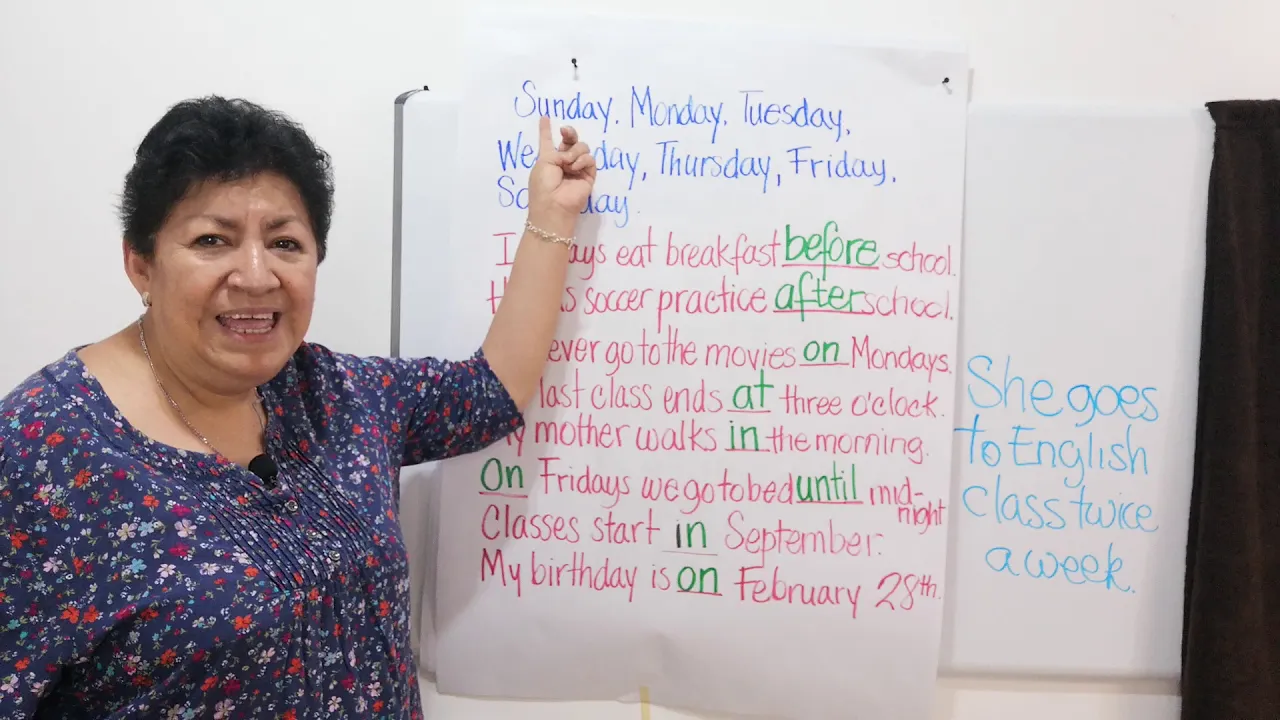 Sunday. Monday, Tuesday,
Thursday, Friday.
I eat breakfast before school.
soccer practice after school.
go to the movies on Mondays.
last class ends at three o'clock.
mother walks in the morning.
On Fridays we go to bed until mid-
night
Classes start in September.
My birthday is on February 28th.
She goes
to English
class twice
a week.